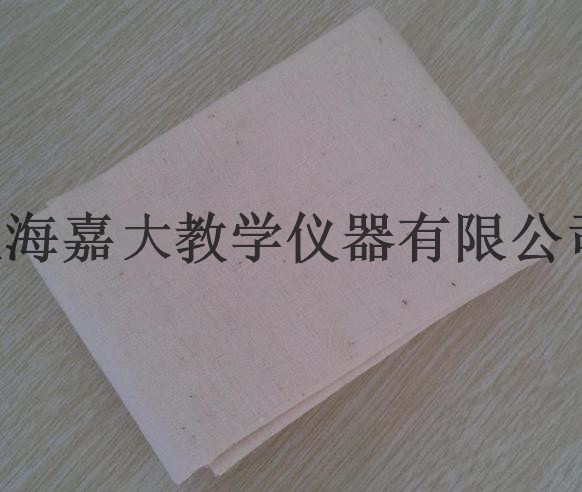 海嘉大教学仪器有限公司